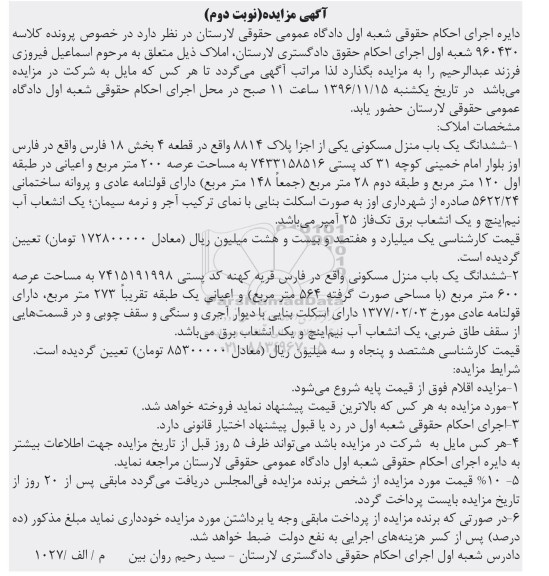 آگهی مزایده(نوبت دوم)
دایره اجرای احکام حقوقی شعبه اول دادگاه عمومی حقوقی لارستان در نظر دارد در خصوص پرونده کلاسه
۹۶۰۴۳۰ شعبه اول اجرای احکام حقوق دادگستری لارستان، املاک ذیل متعلق به مرحوم اسماعیل فیروزی
فرزند عبدالرحیم را به مزایده بگذارد لذا مراتب آگهی می‌گردد تا هر کس که مایل به شرکت در مزایده
می‌باشد در تاریخ یکشنبه ۱۳۹۶/۱۱/۱۵ ساعت ۱۱ صبح در محل اجرای احکام حقوقی شعبه اول دادگاه
عمومی حقوقی لارستان حضور یابد.
مشخصات املاک:
۱-ششدانگ یک باب منزل مسکونی یکی از اجزا پلاک ۸۸۱۴ واقع در قطعه ۴ بخش ۱۸ فارس واقع در فارس
اوز بلوار امام خمینی کوچه ۳۱ کد پستی ۷۴۳۳۱۵۸۵۱۶ به مساحت عرصه ۲۰۰ متر مربع و اعیانی در طبقه
اول ۱۲۰ متر مربع و طبقه دوم ۲۸ متر مربع (جمعاً ۱۴۸ متر مربع) دارای قولنامه عادی و پروانه ساختمانی
۵۶۲۲/۲۴ صادره از شهرداری اوز به صورت اسکلت بنایی با نمای ترکیب آجر و نرمه سیمان؛ یک انشعاب آب
نیم‌اینچ و یک انشعاب برق تک‌فاز ۲۵ آمپر می‌باشد.
قیمت کارشناسی یک میلیارد و هفتصد و بیست و هشت میلیون ریال (معادل ۱۷۲۸۰۰۰۰۰ تومان) تعیین
گردیده است.
۲-ششدانگ یک باب منزل مسکونی واقع در فارس قریه کهنه کد پستی ۷۴۱۵۱۹۱۹۹۸ به مساحت عرصه
۶۰۰ متر مربع (با مساحی صورت گرفته ۵۶۴ متر مربع) و اعیانی یک طبقه تقریباً ۲۷۳ متر مربع، دارای
قولنامه عادی مورخ ۱۳۷۷/۰۲/۰۳ دارای اسکلت بنایی با دیوار آجری و سنگی و سقف چوبی و در قسمت‌هایی
از سقف طاق ضربی، یک انشعاب آب نیم‌اینچ و یک انشعاب برق می‌باشد.
قیمت کارشناسی هشتصد و پنجاه و سه میلیون ریال (معادل ۸۵۳۰۰۰۰۰ تومان) تعیین گردیده است.
شرایط مزایده:
۱-مزایده اقلام فوق از قیمت پایه شروع می‌شود.
۲-مورد مزایده به هر کس که بالاترین قیمت پیشنهاد نماید فروخته خواهد شد.
۳-اجرای احکام حقوقی شعبه اول در رد یا قبول پیشنهاد اختیار قانونی دارد.
۴-هر کس مایل به شرکت در مزایده باشد می‌تواند ظرف ۵ روز قبل از تاریخ مزایده جهت اطلاعات بیشتر
به دایره اجرای احکام حقوقی شعبه اول دادگاه عمومی حقوقی لارستان مراجعه نماید.
۵- ۱۰% قیمت مورد مزایده از شخص برنده مزایده فی‌المجلس دریافت می‌گردد مابقی پس از ۲۰ روز از
تاریخ مزایده بایست پرداخت گردد.
۶-در صورتی که برنده مزایده از پرداخت مابقی وجه یا برداشتن مورد مزایده خودداری نماید مبلغ مذکور (ده
درصد) پس از کسر هزینه‌های اجرایی به نفع دولت ضبط خواهد شد.
دادرس شعبه اول اجرای احکام حقوقی دادگستری لارستان - سید رحیم روان بین م / الف /۱۰۲۷